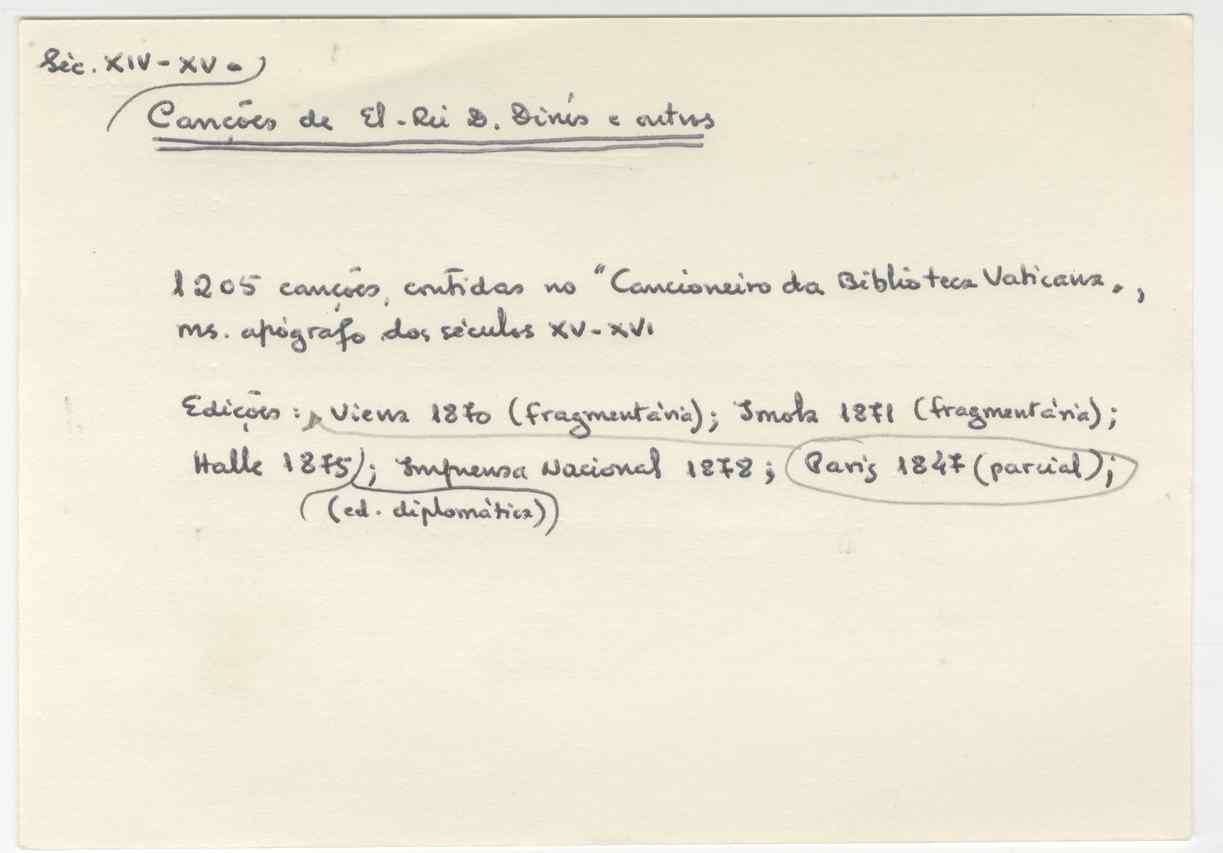 Séc. XIV-XV.
Canções de El-Rei D. Dinís e outros
1205 canções, contidas no "Cancioneiro da Biblioteca Vaticana",
ms. apógrafo dos séculos XV-XVI
Edições: Viena 1870 (fragmentária); Imola 1871 (fragmentária);
Halle 1875; Imprensa Nacional 1878; Paris 1847 (parcial);
(ed. diplomática)